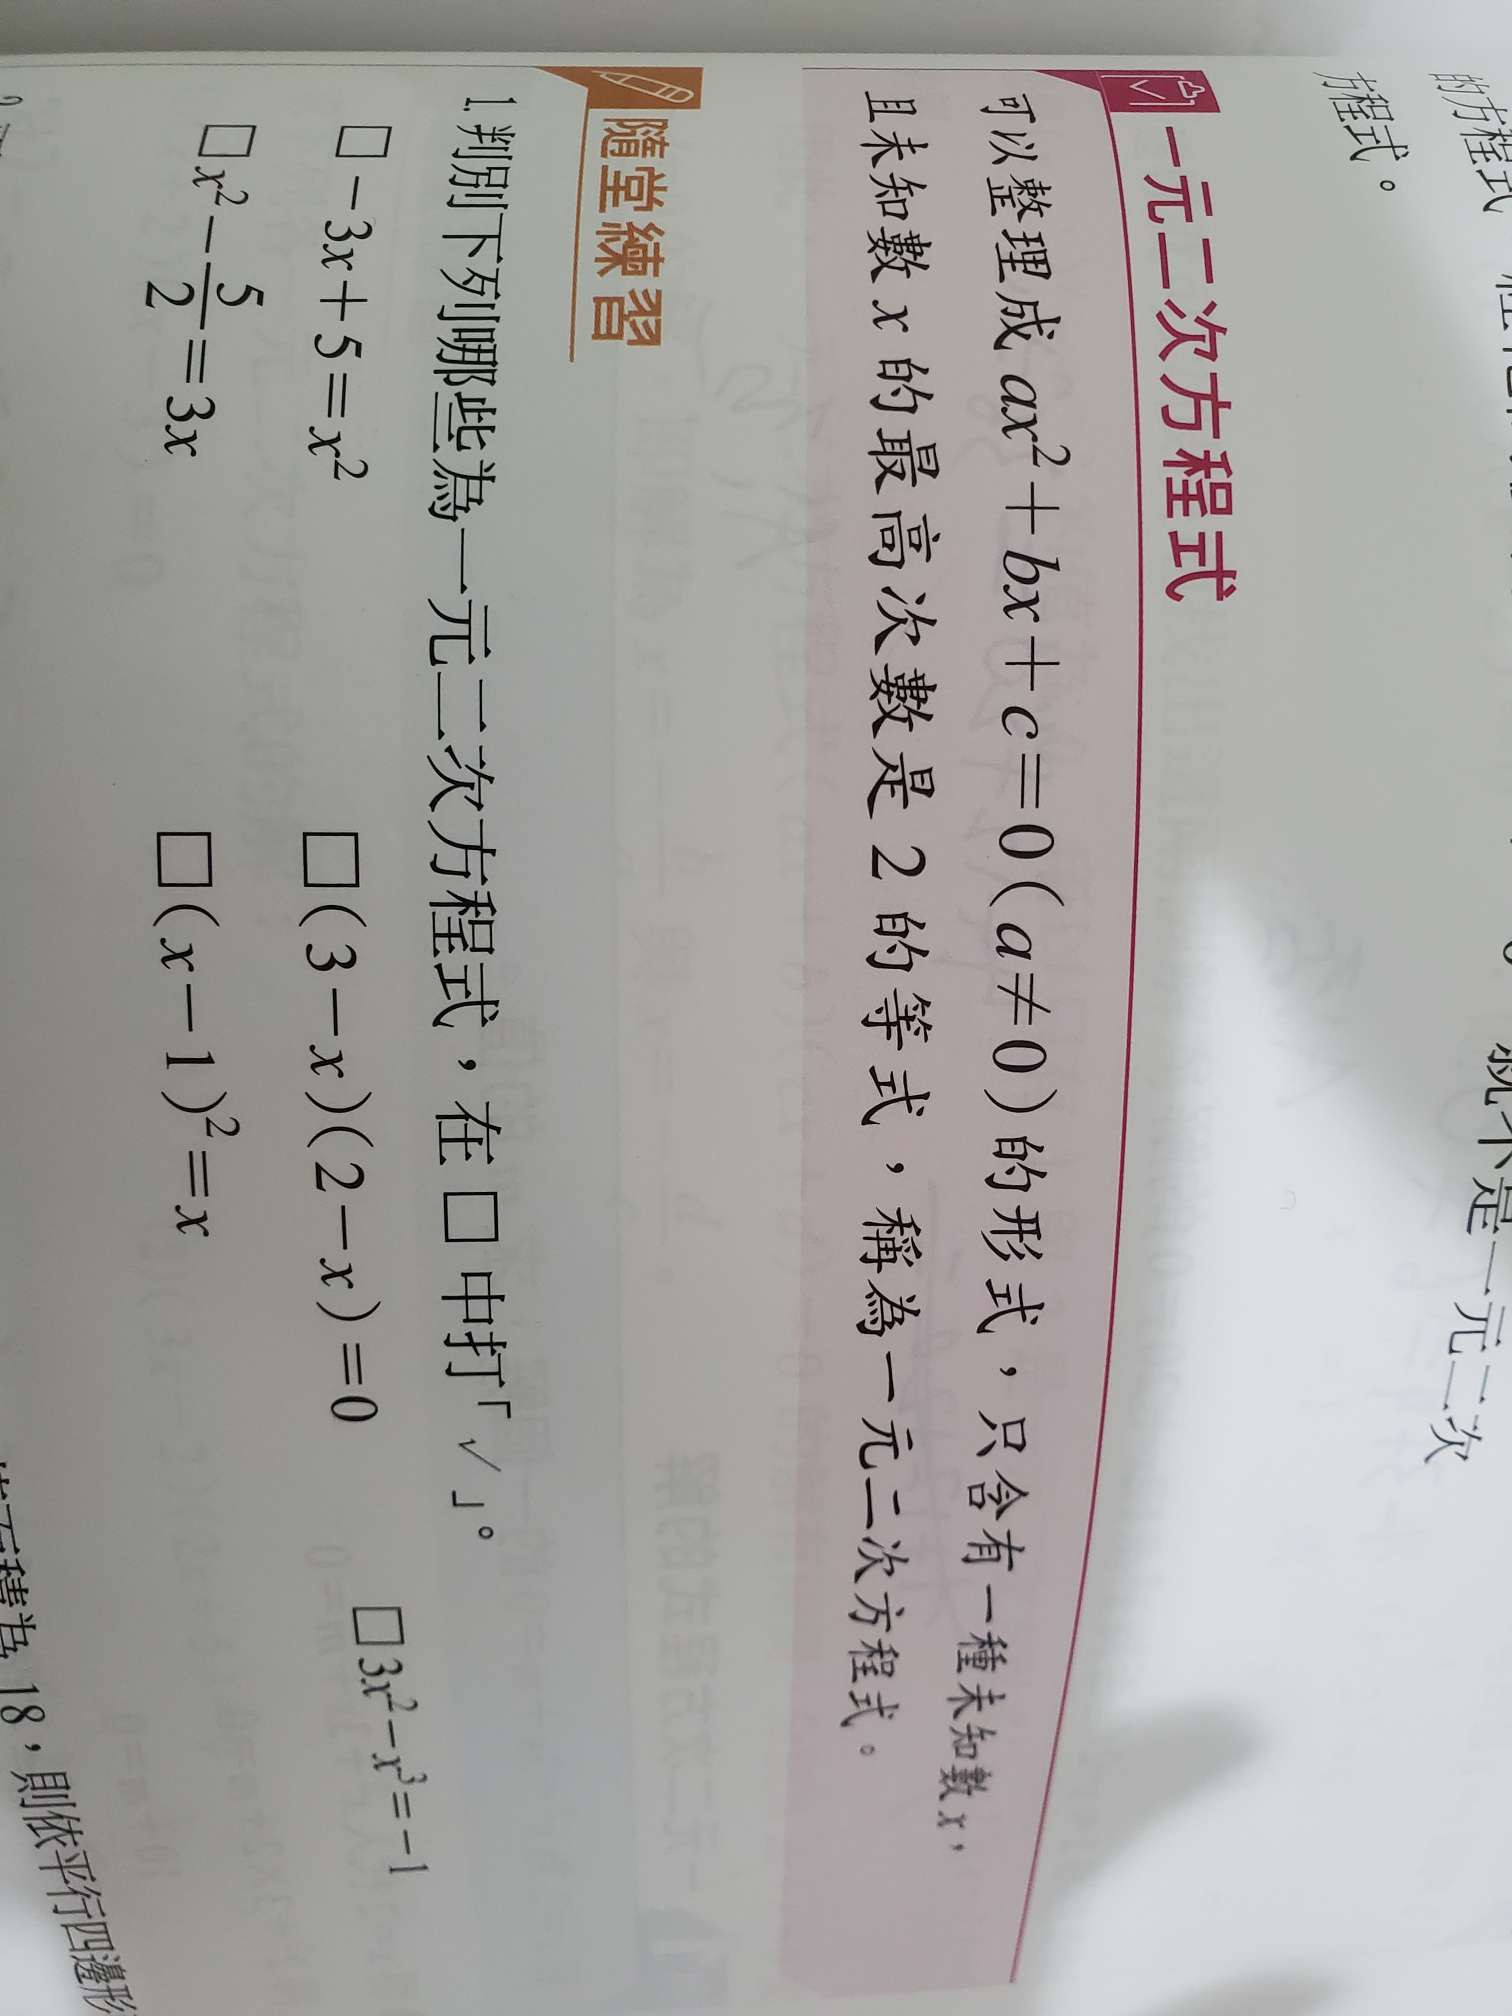 的方程式
就不是一元二次
方程式。
一元二次方程式
可以整理成 ax²+bx+c=0(a≠0)的形式,只含有一種未知數 x,
且未知數 x 的最高次數是 2 的等式,稱為一元二次方程式。
隨堂練習
1. 判別下列哪些為一元二次方程式,在 □ 中打「✓」。
□ -3x+5=x² □ (3-x)(2-x)=0 □ 3x²-x³=-1
□ x²-5/2=3x □ (x-1)²=x
為 18,則依平行四邊形